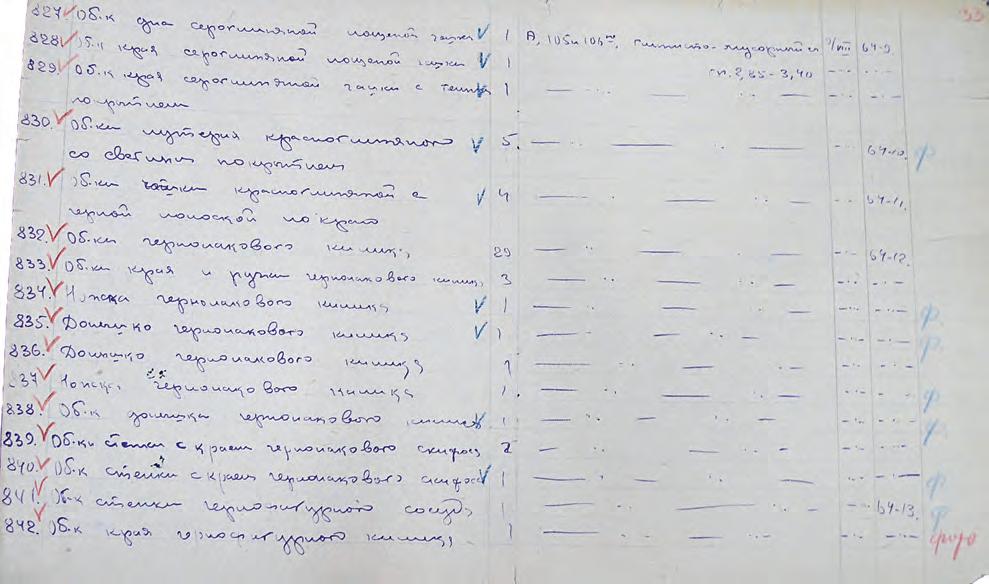 33
827. Об.к дна сероглиняной лощеной чашки 1 А, 105 и 106, глинисто-мусорный сл. 9/VIII 64-9.
828. Об.к края сероглиняной лощеной чашки 1 гл. 2,85-3,40
829. Об.к края сероглиняной чашки с темн. 1
покрытием
830. Об.ки лутерия красноглиняного 5. 64-10. ф
со светлым покрытием
831. Об.ки чашки красноглиняной с 4 64-11.
черной полоской по краю
832. Об.ки чернолакового килика 29 64-12.
833. Об.ки края и ручки чернолакового килика 3
834. Ножка чернолакового килика 1 ф.
835. Донышко чернолакового килика 1 ф.
836. Донышко чернолакового килика 1
837 Ножка чернолакового килика 1 ф
838. Об.к донышка чернолакового килика 1 ф.
839. Об.ки стенки с краем чернолакового скифоса 2
840. Об.к стенки с краем чернолакового скифоса 1 ф
841. Об.к стенки чернофигурного сосуда 1 64-13. ф
842. Об.к края чернофигурного килика 1 фото